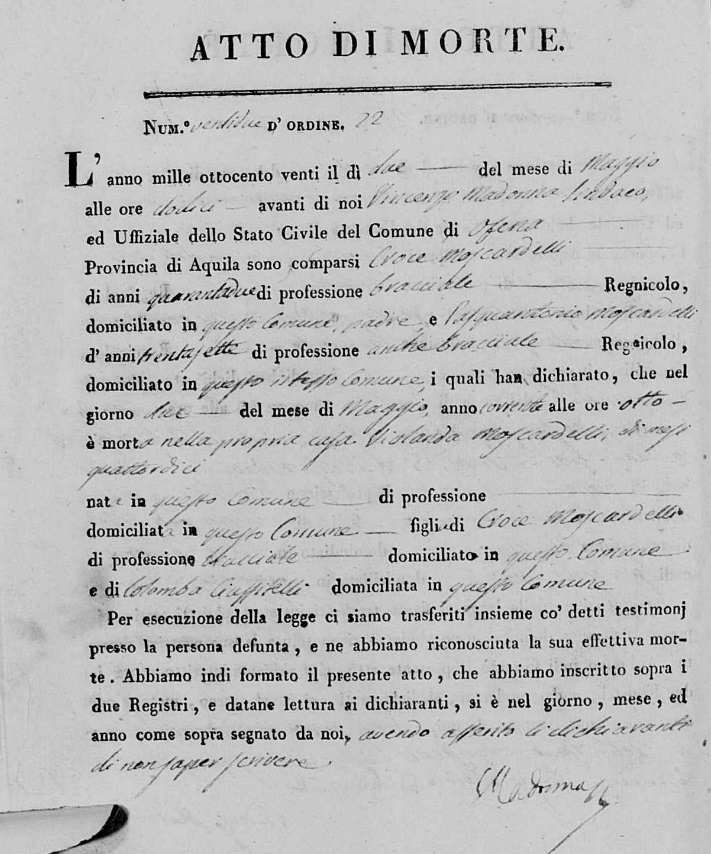 ATTO DI MORTE.
NUM.º ventidue D'ORDINE. 22
L'anno mille ottocento venti il dì due del mese di Maggio
alle ore dodici avanti di noi Vincenzo Madonna Sindaco,
ed Uffiziale dello Stato Civile del Comune di Ofena
Provincia di Aquila sono comparsi Croce Moscardelli
di anni quarantadue di professione bracciale Regnicolo,
domiciliato in questo Comune, padre, e Pasquantonio Moscardelli
d'anni trentasette di professione anche bracciale Regnicolo,
domiciliato in questo istesso Comune, i quali han dichiarato, che nel
giorno due del mese di Maggio, anno corrente alle ore otto
è morta nella propria casa Violanda Moscardelli, di mesi
quattordici
nata in questo Comune di professione
domiciliata in questo Comune figlia di Croce Moscardelli
di professione bracciale domiciliato in questo Comune
e di Colomba domiciliata in questo Comune
Per esecuzione della legge ci siamo trasferiti insieme co' detti testimonj
presso la persona defunta, e ne abbiamo riconosciuta la sua effettiva mor-
te. Abbiamo indi formato il presente atto, che abbiamo inscritto sopra i
due Registri, e datane lettura ai dichiaranti, si è nel giorno, mese, ed
anno come sopra segnato da noi, avendo asserito li dichiaranti
di non saper scrivere.
Madonna